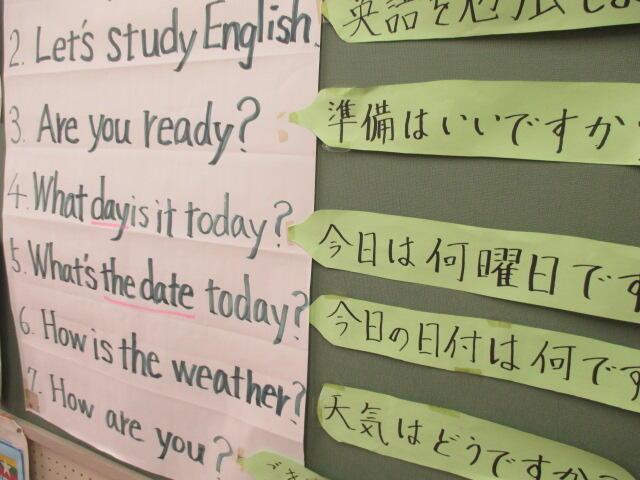 2. Let's study English.
英語を勉強しま
3. Are you ready?
準備はいいですか
4. What day is it today?
今日は何曜日です
5. What's the date today?
今日の日付は何です
6. How is the weather?
天気はどうですか
7. How are you?